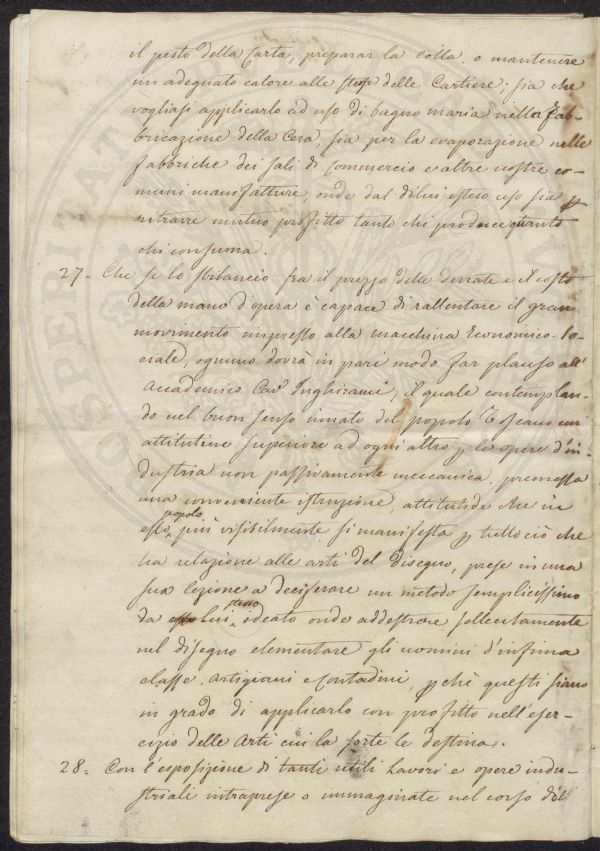 il pesto della Carta, preparar la colla, o mantenere
un adeguato calore alle stufe delle Cartiere; sia che
vogliasi applicarlo ad uso di bagno maria nella fab-
bricazione della Cera, sia per la evaporazione nelle
fabbriche dei sali di Commercio e altre nostre co-
muni manifatture, onde dal di lui esteso uso sia p
ritrarre mutuo profitto tanto chi produce quanto
chi consuma.
27- Che se lo sbilancio fra il prezzo delle derrate e il costo
della mano d'opera è capace di rallentare il gran
movimento impresso alla macchina Economico-so-
ciale, ognuno dovrà in pari modo far plauso all'
Accademico Cav. Inghirami, il quale contemplan-
do nel buon senso innato del popolo Toscano un
attitudine superiore ad ogni altro p le opere d'in-
dustria non passivamente meccanica, premessa
una conveniente istruzione, attitudine che in
esso popolo più visibilmente si manifesta p tutto ciò che
ha relazione alle arti del Disegno, prese in una
sua lezione a deciferare un metodo semplicissimo
da lui stesso ideato onde addestrare sollecitamente
nel disegno elementare gli uomini d'infima
classe, Artigiani e Contadini, pchè questi siano
in grado di applicarlo con profitto nell'eser-
cizio delle Arti cui la sorte le destina.
28= Con l'esposizione di tanti utili lavori e opere indu-
striali intraprese o immaginate nel corso del